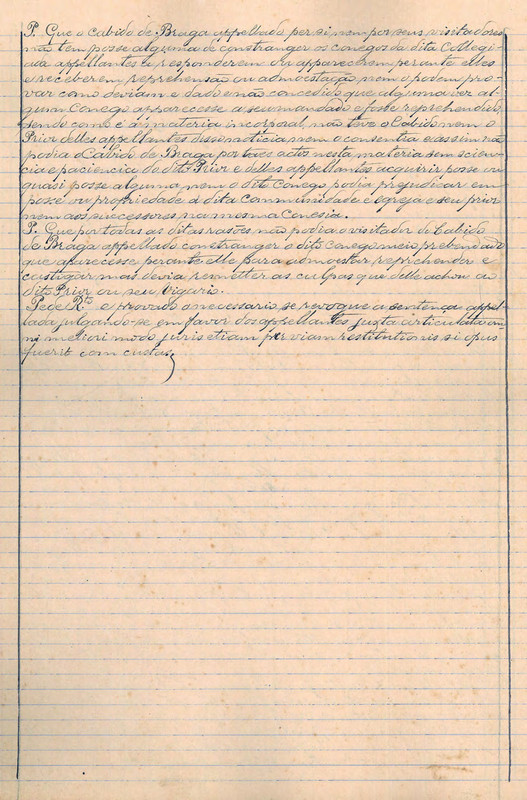 P. Que o Cabido de Braga appellado per si nem por seus visitadores
não tem posse alguma de constranger os conegos da dita Collegi-
ada appellantes a responderem ou apparecerem perante elles
e receberem reprehensão ou admoestação nem o podem pro-
var como deviam e dado e não concedido que alguma vez al-
gum Conego apparecesse a seu mandado e fosse reprehendido,
sendo como é a materia incorporal, não teve o Cabido nem o
Prior delles appellantes disso noticia nem o consentiu e assim não
podia o Cabido de Braga por taes actos nesta materia sem scien-
cia e paciencia do dito Prior e delles appellantes acquirir posse ou
quasi posse alguma nem o dito Conego podia prejudicar em
posse ou propriedade á dita communidade e Egreja e seu prior
nem aos successores na mesma Conesia.
P. Que por todas as ditas rasões não podia o visitador do Cabido
de Braga appellado constranger o dito conego meio prebendado
que aparecesse perante elle para admoestar reprehender e
castigar mas devia remetter as culpas que delle achou ao
dito Prior ou seu Vigario.
Pede Rto e provado o necessario se revogue a sentença appel-
lada julgando-se em favor dos appellantes juxta articulata om
ni meliori modo juris etiam per viam restitutionis si opus
fuerit com custas